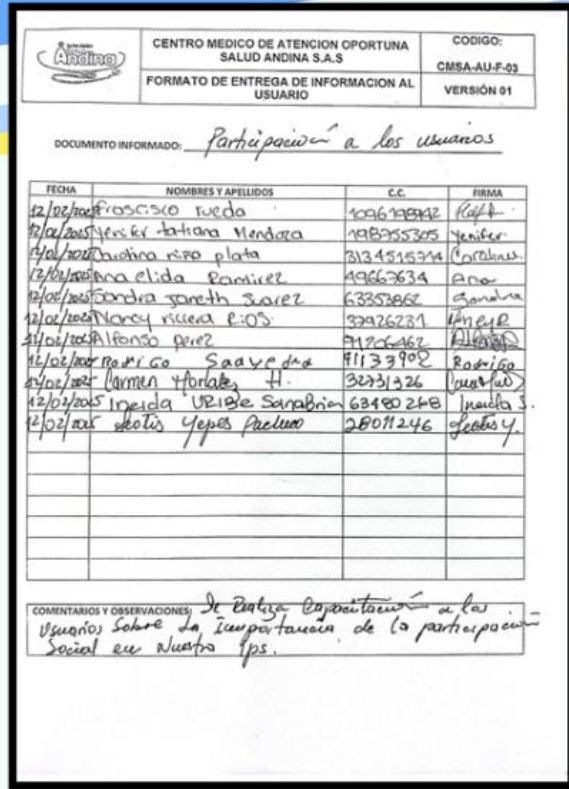 Andina
CENTRO MEDICO DE ATENCION OPORTUNA
SALUD ANDINA S.A.S
CODIGO:
CMSA-AU-F-03
FORMATO DE ENTREGA DE INFORMACION AL
USUARIO
VERSIÓN 01
DOCUMENTO INFORMADO: Participación a los usuarios
FECHA NOMBRES Y APELLIDOS C.C. FIRMA
12/02/2025 rueda
12/02/2025 Yenifer tatiana Mendoza 198755305 Yenifer.
12/02/2025 plata
12/02/2025 Ana elida Ramirez 49667634 Ana
12/02/2025 Sandra Janeth Suarez 63353862 Sandra
12/02/2025 Nancy RIOS. 37926231
12/02/2025 Alfonso perez 91206462
12/02/2025 RodriGo Saavedra 91133902 RodriGo
12/02/2025 Carmen H. 32731326
12/02/2025 Ineida URIBe Sanabria 63480268 Ineida S.
12/02/2025 Yepes Pacheco 28011246 Y.
COMENTARIOS Y OBSERVACIONES: Se Realiza Capacitación a los
Usuarios Sobre La Importancia de la participación
Social en Nuestra Ips.